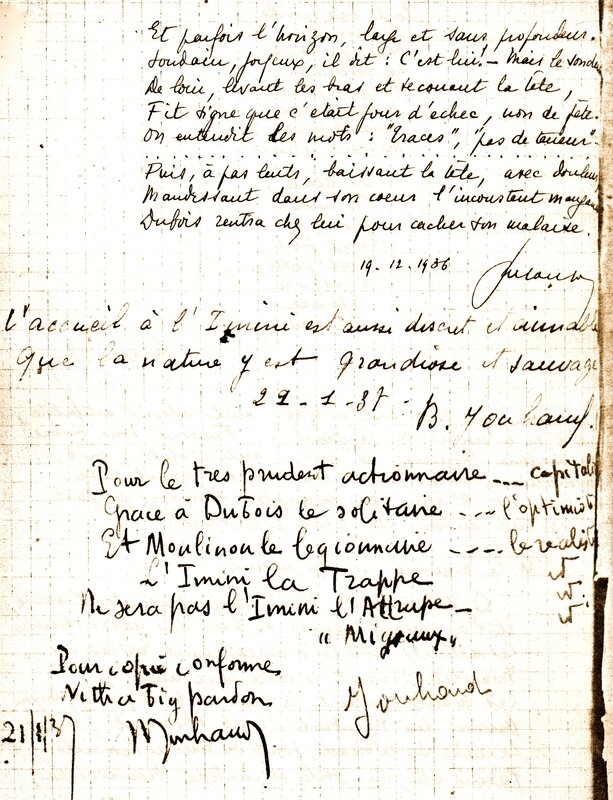 Et parfois l'horizon, large et sans profondeur.
Soudain, joyeux, il dit : C'est lui! — Mais le
De loin, levant les bras et secouant la tête,
Fit signe que c'était jour d'échec, non de fête.
On entendit les mots : "traces", "pas de teneur".
. . . . . . . . . . . . . . . . . . . . . . . . . . . . . .
Puis, à pas lents, baissant la tête, avec douleur
Maudissant dans son coeur l'inconstant
Dubois rentra chez lui pour cacher son malaise.
19.12.1936
L'accueil à l'Imini est aussi discret et aimable
Que la nature y est grandiose et sauvage
29-1-37 - B. Jouhaud.
Pour le tres prudent actionnaire --- capitali
Grace à Dubois le solitaire --- l'optimist
Et Moulinou le legionnaire ---- le realist
L'Imini la Trappe
Ne sera pas l'Imini l'Attrape —
"Migeaux"
Pour copie conforme
Jouhaud
21/1/37